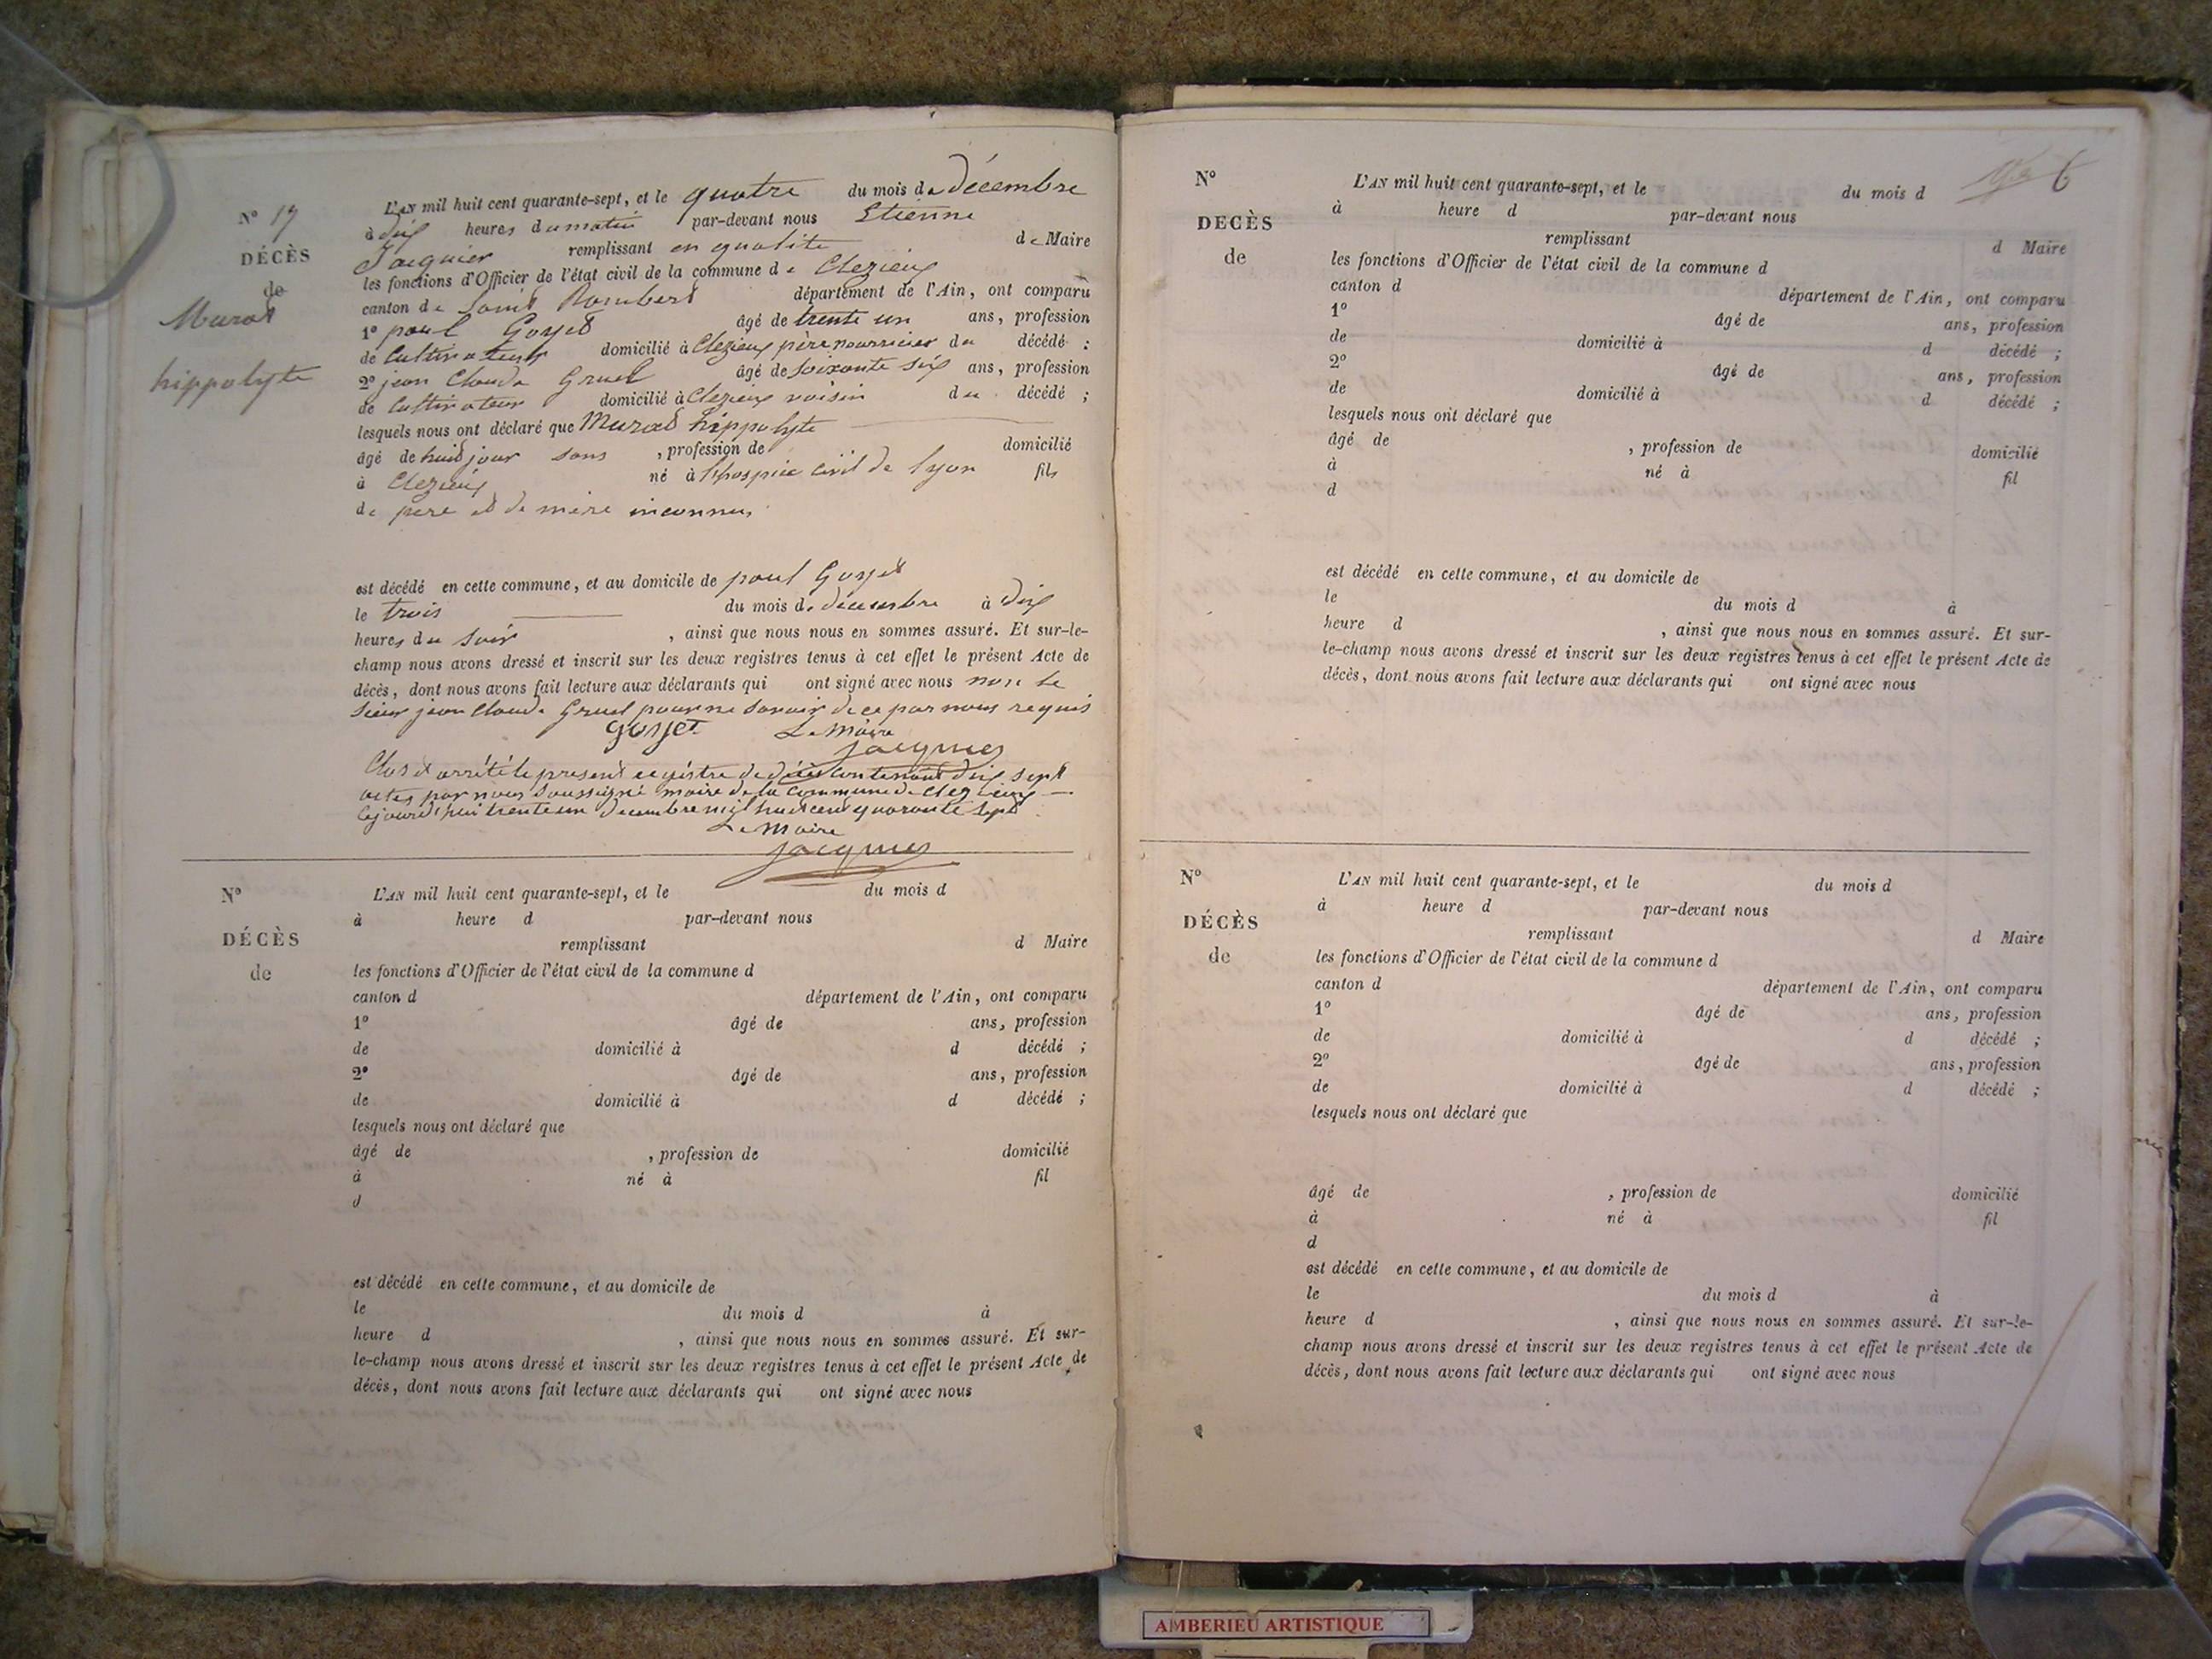 N° 17
DÉCÈS
de
Murat
hippolyte
L'AN mil huit cent quarante-sept, et le quatre du mois de décembre
à dix heures du matin par-devant nous Etienne
Jacquier remplissant en qualité de Maire
les fonctions d'Officier de l'état civil de la commune de Clezieux
canton de Saint Rambert département de l'Ain, ont comparu
1° paul Goyet âgé de trente un ans, profession
de Cultivateur domicilié à Clezieux père nourricier du décédé ;
2° jean Claude Gruel âgé de soixante six ans, profession
de Cultivateur domicilié à Clezieux voisin du décédé ;
lesquels nous ont déclaré que Murat hippolyte
âgé de huit jour sans , profession de domicilié
à Clezieux né à lhospice civil de lyon fils
de père et de mère inconnus
est décédé en cette commune, et au domicile de paul Goyet
le trois du mois de décembre à dix
heures du soir , ainsi que nous nous en sommes assuré. Et sur-le-
champ nous avons dressé et inscrit sur les deux registres tenus à cet effet le présent Acte de
décès, dont nous avons fait lecture aux déclarants qui ont signé avec nous non le
sieur jean Claude Gruel pour ne savoir de ce par nous requis
goyet Le Maire
Clos et arrêté le present registre de décès Contenant dix sept
actes par nous soussigné maire de la Commune de Clezieux
Cejourd'hui trente un Decembre mil huit cent quarante sept
Le Maire
N°
DÉCÈS
de
L'AN mil huit cent quarante-sept, et le du mois d
à heure d par-devant nous
remplissant d Maire
les fonctions d'Officier de l'état civil de la commune d
canton d département de l'Ain, ont comparu
1° âgé de ans, profession
de domicilié à d décédé ;
2° âgé de ans, profession
de domicilié à d décédé ;
lesquels nous ont déclaré que
âgé de , profession de domicilié
à né à fil
d
est décédé en cette commune, et au domicile de
le du mois d à
heure d , ainsi que nous nous en sommes assuré. Et sur-
le-champ nous avons dressé et inscrit sur les deux registres tenus à cet effet le présent Acte de
décès, dont nous avons fait lecture aux déclarants qui ont signé avec nous
6
N°
DECÈS
de
L'AN mil huit cent quarante-sept, et le du mois d
à heure d par-devant nous
remplissant d Maire
les fonctions d'Officier de l'état civil de la commune d
canton d département de l'Ain, ont comparu
1° âgé de ans, profession
de domicilié à d décédé ;
2° âgé de ans, profession
de domicilié à d décédé ;
lesquels nous ont déclaré que
âgé de , profession de domicilié
à né à fil
d
est décédé en cette commune, et au domicile de
le du mois d à
heure d , ainsi que nous nous en sommes assuré. Et sur-
le-champ nous avons dressé et inscrit sur les deux registres tenus à cet effet le présent Acte de
décès, dont nous avons fait lecture aux déclarants qui ont signé avec nous
N°
DÉCÈS
de
L'AN mil huit cent quarante-sept, et le du mois d
à heure d par-devant nous
remplissant d Maire
les fonctions d'Officier de l'état civil de la commune d
canton d département de l'Ain, ont comparu
1° âgé de ans, profession
de domicilié à d décédé ;
2° âgé de ans, profession
de domicilié à d décédé ;
lesquels nous ont déclaré que
âgé de , profession de domicilié
à né à fil
d
est décédé en cette commune, et au domicile de
le du mois d à
heure d , ainsi que nous nous en sommes assuré. Et sur-le-
champ nous avons dressé et inscrit sur les deux registres tenus à cet effet le présent Acte de
décès, dont nous avons fait lecture aux déclarants qui ont signé avec nous
AMBERIEU ARTISTIQUE